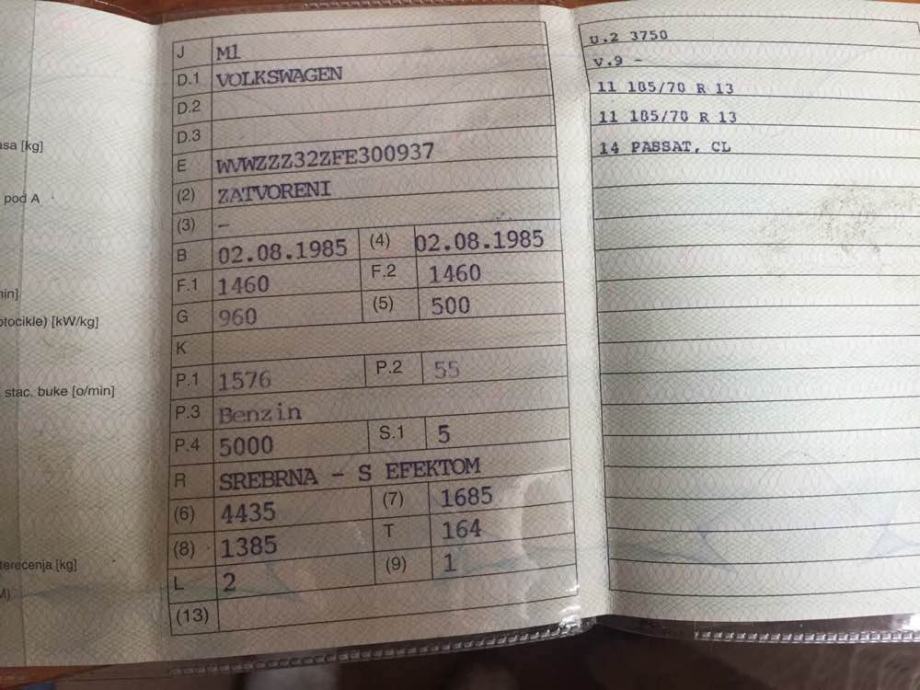 asa [kg]
pod A
min]
otocikle) [kW/kg]
stac. buke [o/min]
terećenja [kg]
M)
J M1
D.1 VOLKSWAGEN
D.2
D.3
E WVWZZZ32ZFE300937
(2) ZATVORENI
(3) -
B 02.08.1985 (4) 02.08.1985
F.1 1460 F.2 1460
G 960 (5) 500
K
P.1 1576 P.2 55
P.3 Benzin
P.4 5000 S.1 5
R SREBRNA - S EFEKTOM
(6) 4435 (7) 1685
(8) 1385 T 164
L 2 (9) 1
(13)
U.2 3750
V.9 -
11 185/70 R 13
11 185/70 R 13
14 PASSAT, CL